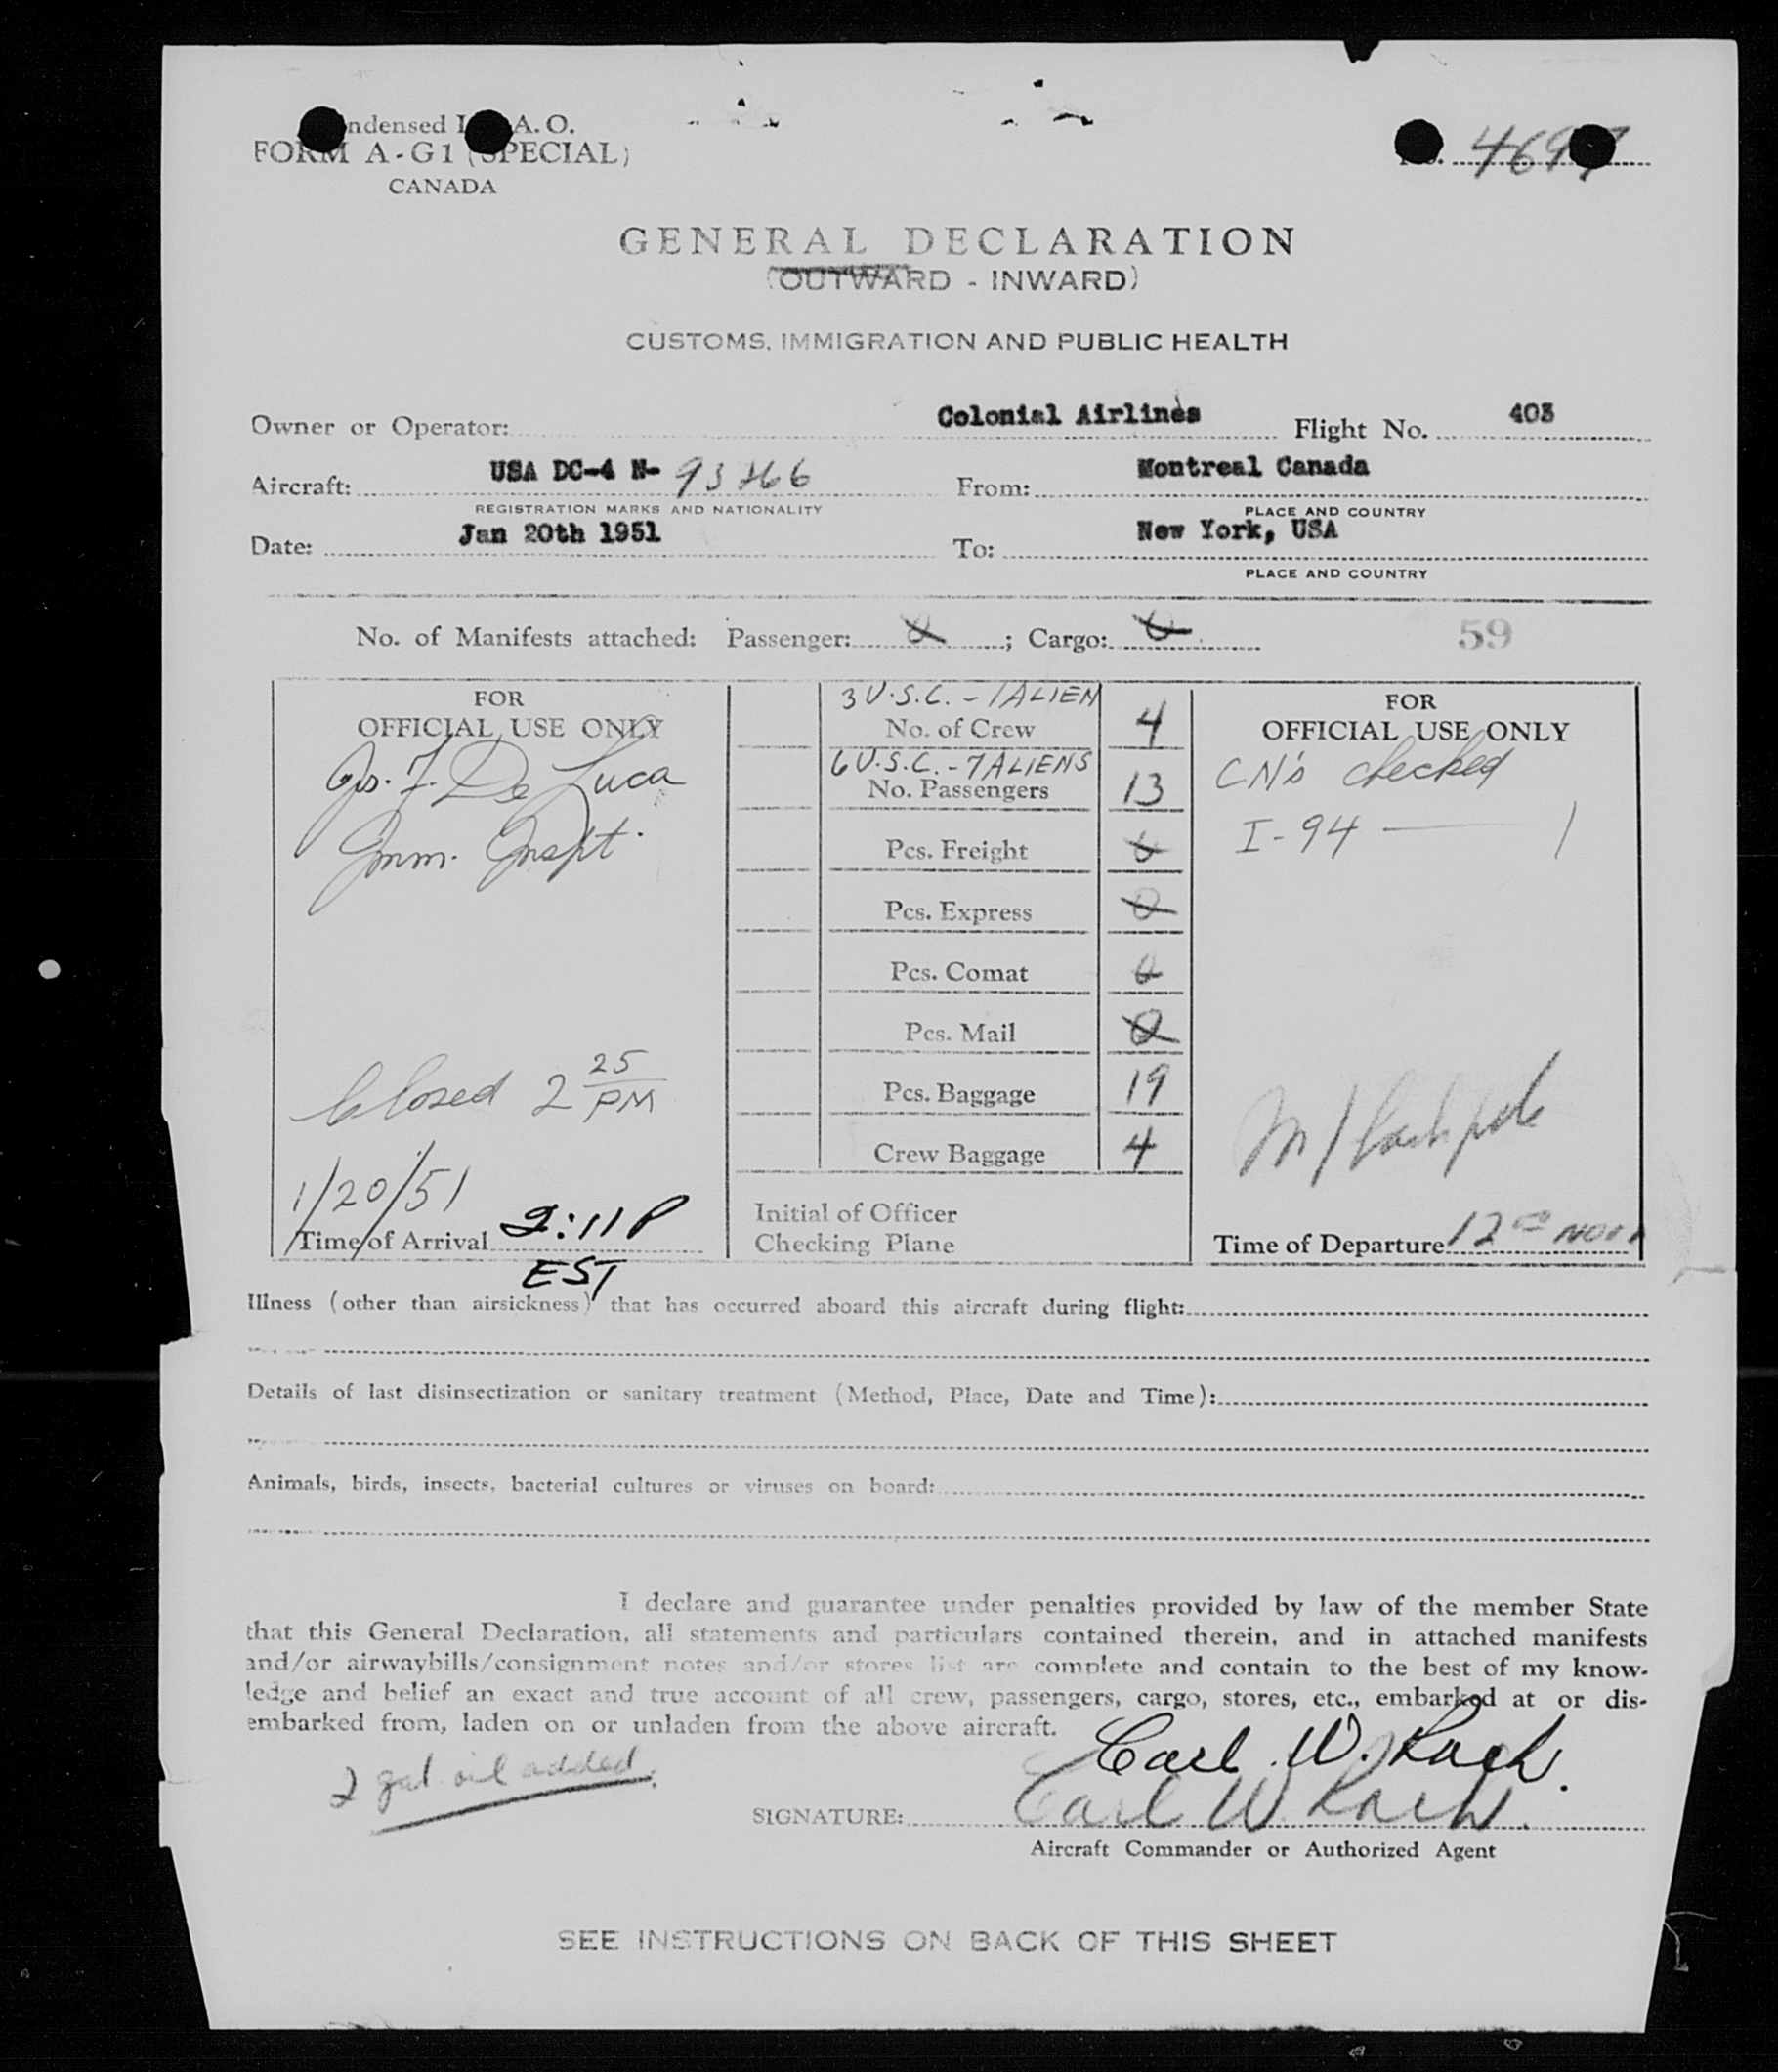 ndensed I A. O.
FORM A-G1 (SPECIAL)
CANADA
469
GENERAL DECLARATION
(OUTWARD - INWARD)
CUSTOMS, IMMIGRATION AND PUBLIC HEALTH
Owner or Operator: Colonial Airlines Flight No. 403
Aircraft: USA DC-4 N- From: Montreal Canada
REGISTRATION MARKS AND NATIONALITY PLACE AND COUNTRY
Date: Jan 20th 1951 To: New York, USA
PLACE AND COUNTRY
No. of Manifests attached: Passenger: 0; Cargo: 0 59
FOR
OFFICIAL USE ONLY
Jos. F. De Luca
Imm. Inspt.
Closed 2 25 PM
1/20/51
Time of Arrival 2:11 P
EST
3 U.S.C. - 1 ALIEN
No. of Crew 4
6 U.S.C. - 7 ALIENS
No. Passengers 13
Pcs. Freight 0
Pcs. Express 0
Pcs. Comat 0
Pcs. Mail 0
Pcs. Baggage 19
Crew Baggage 4
Initial of Officer
Checking Plane
FOR
OFFICIAL USE ONLY
CN's checked
I-94 — 1
Time of Departure 12 00 noon
Illness (other than airsickness) that has occurred aboard this aircraft during flight:
Details of last disinsectization or sanitary treatment (Method, Place, Date and Time):
Animals, birds, insects, bacterial cultures or viruses on board:
I declare and guarantee under penalties provided by law of the member State
that this General Declaration, all statements and particulars contained therein, and in attached manifests
and/or airwaybills/consignment notes and/or stores list are complete and contain to the best of my know-
ledge and belief an exact and true account of all crew, passengers, cargo, stores, etc., embarked at or dis-
embarked from, laden on or unladen from the above aircraft.
Carl W. Rach.
2 gal oil added.
SIGNATURE: Carl W Rach.
Aircraft Commander or Authorized Agent
SEE INSTRUCTIONS ON BACK OF THIS SHEET